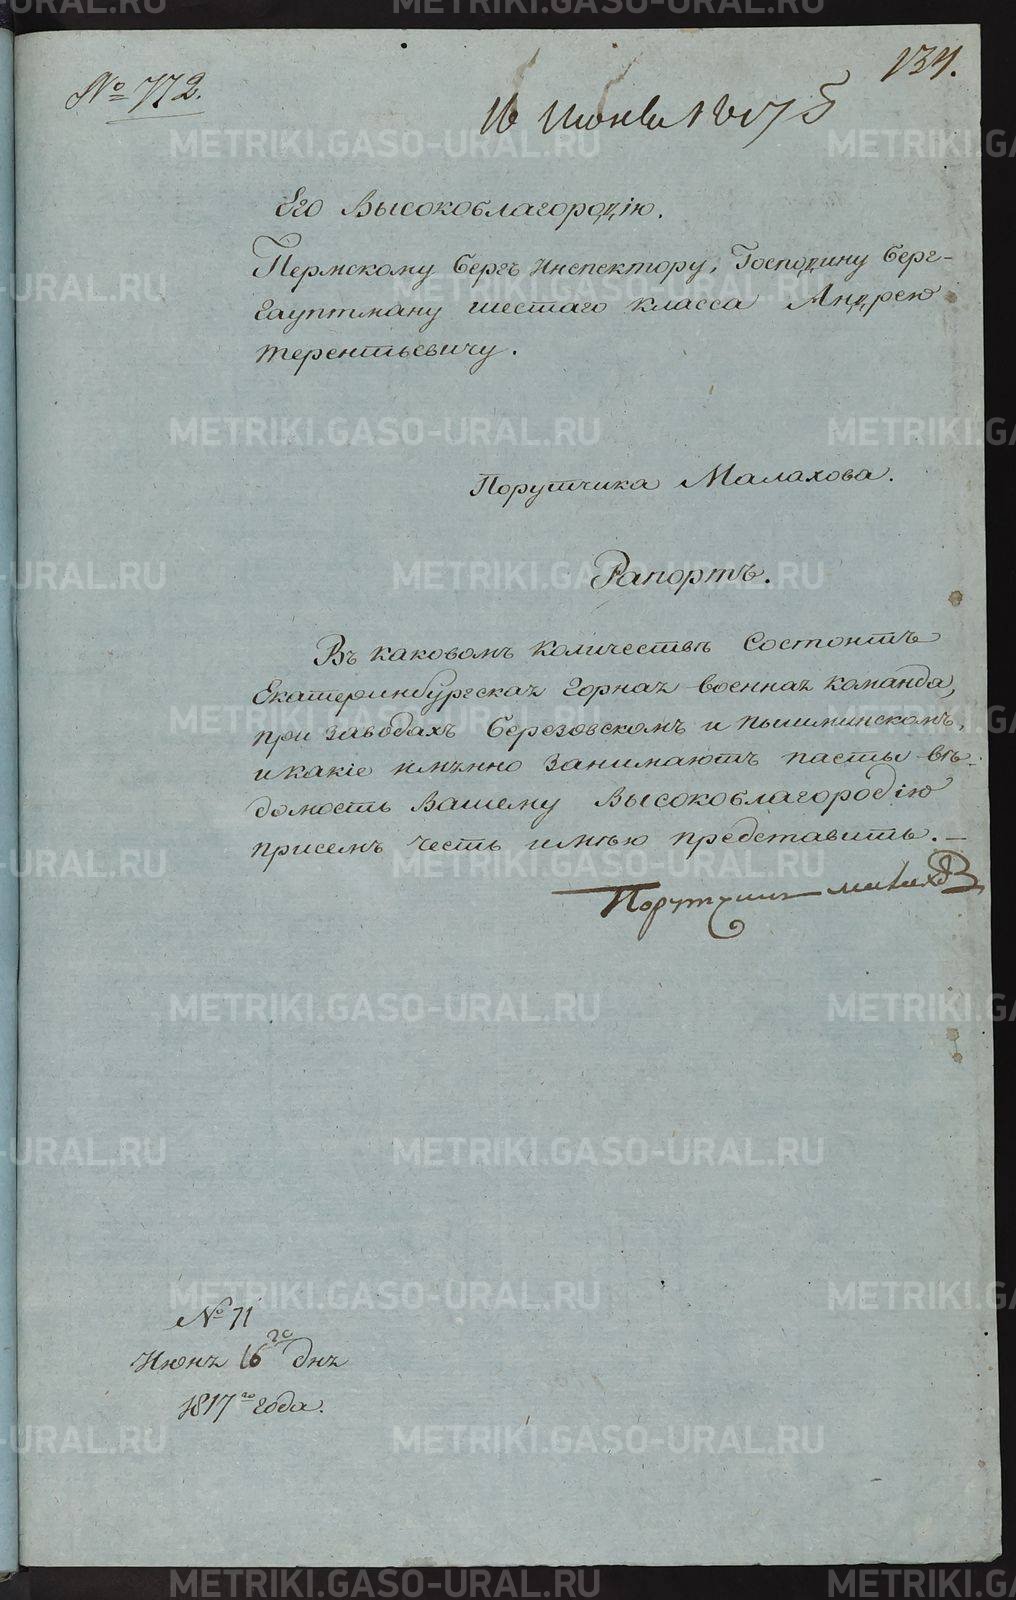 № 772.
134.
16 Июня 1817
Его Высокоблагородію.
Пермскому Бергъ Инспектору, Господину Берг-
гауптману шестаго класса Андрею
Терентьевичу.
Порутчика Малахова.
Рапортъ.
Въ каковомъ количествѣ состоитъ
Екатеринбургская Горная военная команда,
при заводахъ Березовскомъ и Пышминскомъ,
и какіе имянно занимаютъ пасты вѣ-
домость Вашему Высокоблагородію
присемъ честь имѣю представить.
Порутчикъ Малахов
№ 71
Июня 16го дня
1817го года.
METRIKI.GASO-URAL.RU